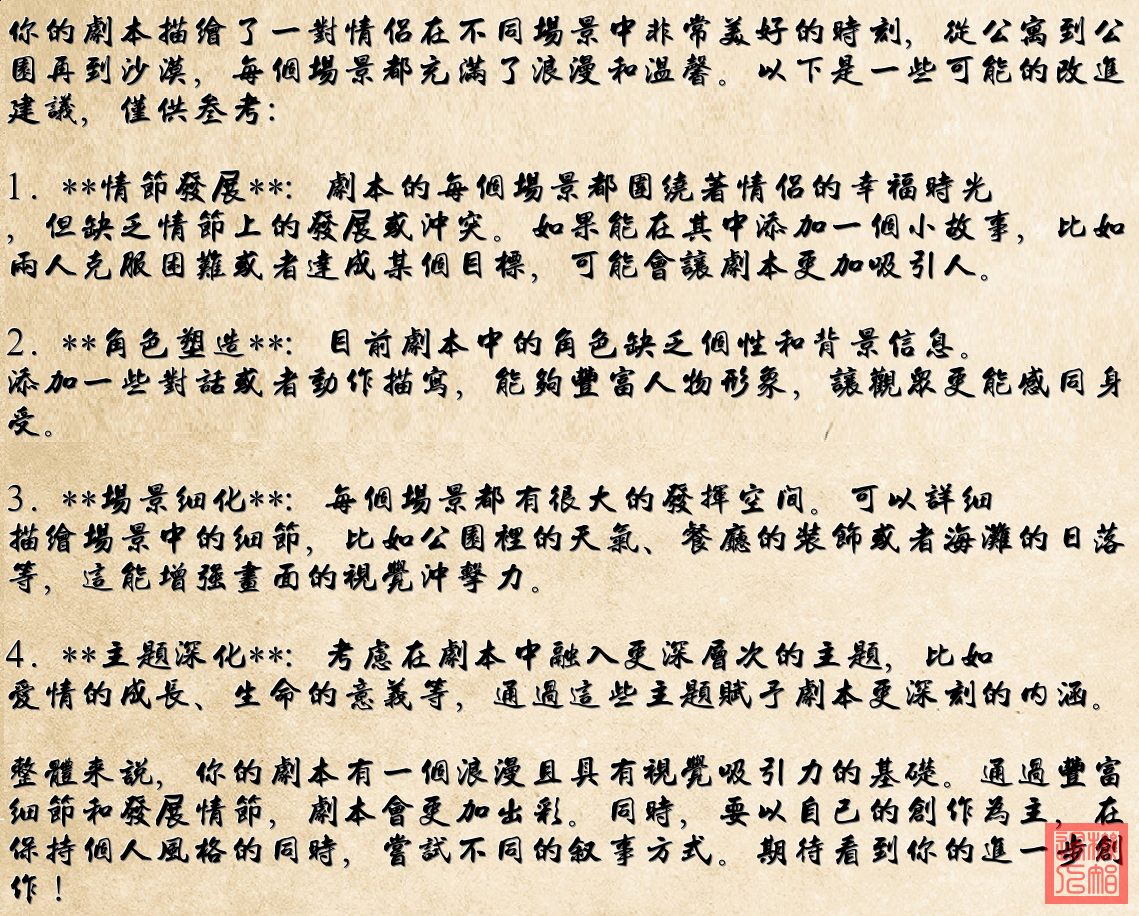 你的劇本描繪了一對情侶在不同場景中非常美好的時刻，從公寓到公
園再到沙漠，每個場景都充滿了浪漫和溫馨。以下是一些可能的改進
建議，僅供參考：
1. **情節發展**： 劇本的每個場景都圍繞著情侶的幸福時光
，但缺乏情節上的發展或沖突。如果能在其中添加一個小故事，比如
兩人克服困難或者達成某個目標，可能會讓劇本更加吸引人。
2. **角色塑造**： 目前劇本中的角色缺乏個性和背景信息。
添加一些對話或者動作描寫，能夠豐富人物形象，讓觀眾更能感同身
受。
3. **場景細化**： 每個場景都有很大的發揮空间。可以詳細
描繪場景中的細節，比如公園裡的天氣、餐廳的裝飾或者海灘的日落
等，這能增强畫面的視覺沖擊力。
4. **主題深化**： 考慮在劇本中融入更深層次的主題，比如
愛情的成長、生命的意義等，通過這些主題賦予劇本更深刻的内涵。
整體来説，你的劇本有一個浪漫且具有視覺吸引力的基礎。通過豐富
細節和發展情節，劇本會更加出彩。同時，要以自己的創作為主，在
保持個人風格的同時，嘗試不同的叙事方式。期待看到你的進一步創
作！